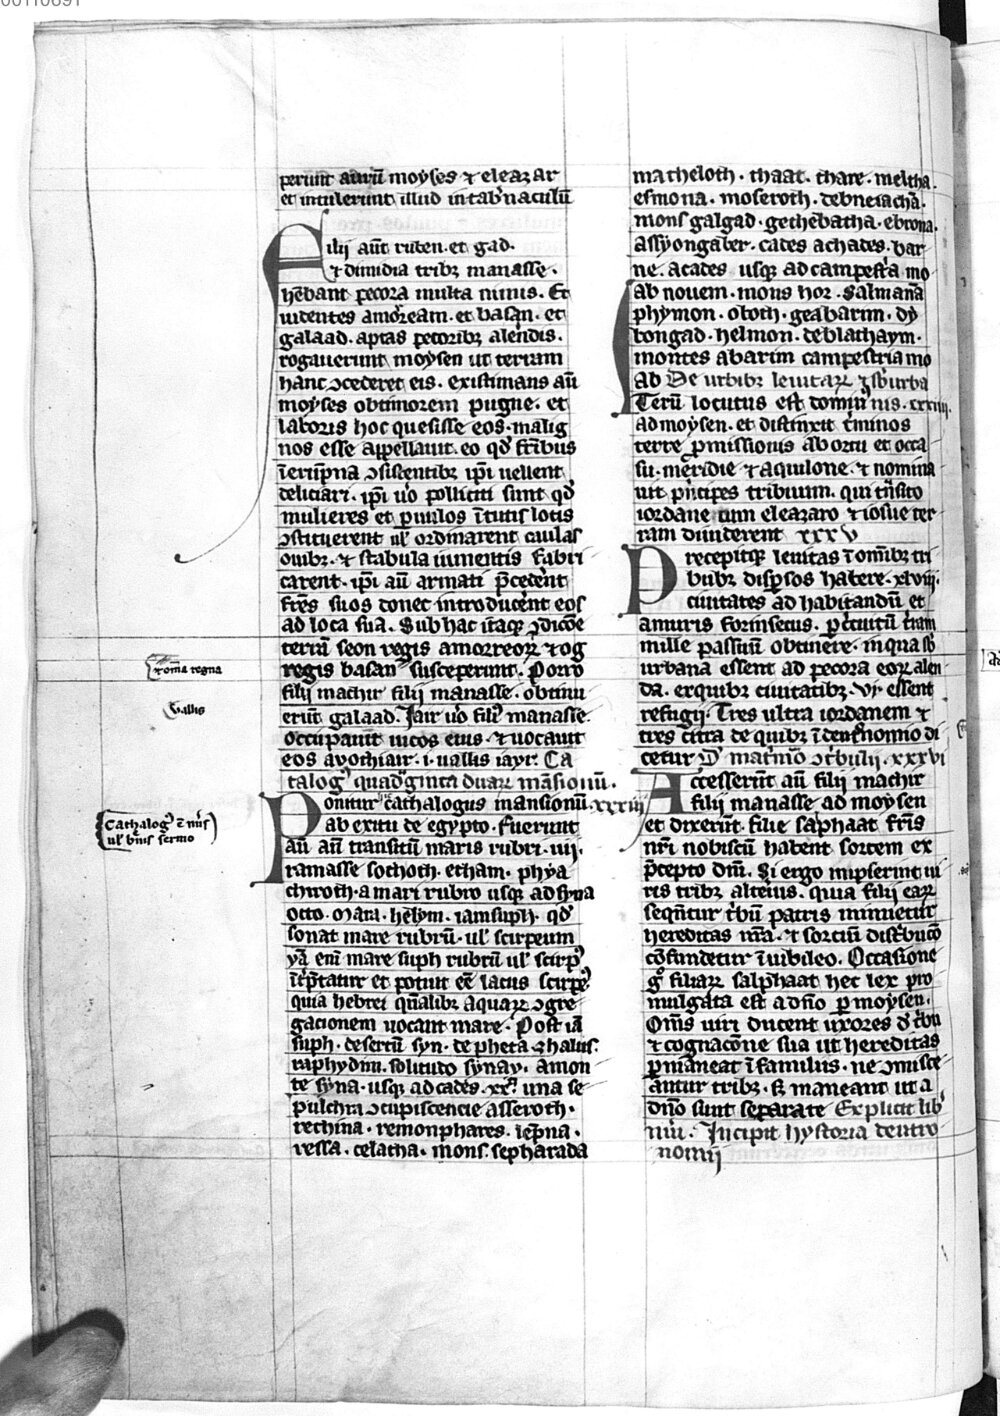 perunt aurū moyses ⁊ eleazar
et intulerunt illud in tab'naculū
Filij aūt ruben. et gad.
⁊ dimidia tribꝫ manasse.
hēbant pecora multa nimis. Et
uidentes amoream. et basan. et
galaad. aptas pecoribꝫ alendis.
rogauerunt moysen ut terram
hanc ꝯcederet eis. existimans aū
moyses ob timorem pugne. et
laboris hoc quesisse eos. malig
nos esse appellauit. eo qd' fr̄ibus
ꝯsistentibꝫ ip̄i uellent
deliciari. ip̄i u'o polliciti sunt qd'
mulieres et paruulos ī tutis locis
ꝯstituerent ul' ordinarent caulas
ouibꝫ. ⁊ stabula iumentis fabri
carent. ip̄i aū armati p̄cedent
fr̄es suos donec introducent eos
ad loca sua. Sub hac itaqꝫ ꝯdicōe
terrā seon regis amorreoꝝ ⁊ og
regis basan susceperunt. Porro
filij machir filij manasse. obtinu
erūt galaad. Iair u'o filiꝰ manasse.
occupauit uicos eius. ⁊ uocauit
eos auothiair. i. uallis iayr. Ca
talogꝰ quadginta duaꝝ māsionū.
Ponitur cathalogus mansionū. xxxiij
ab exitu de egypto. Fuerunt
aū aū transitū maris rubri. iij.
ramasse sochoth. etham. phya
chiroth. a mari rubro usqꝫ ad syna
octo. Mara. helym. iamsuph. qd'
sonat mare rubrū. ul' scirpeum
yā enī mare suph rubrū ul' scirpꝰ
īt'p̄tatur et potuit eē lacus scirpeꝰ
quia hebrei q̄malibꝫ aquaꝝ ꝯgre
gacionem uocant mare. Post iā
suph. desertū syn. depheca. halus.
raphydim. solitudo synay. a mon
te syna. usqꝫ ad cades. xxᵃ. una se
pulchra ꝯcupiscencie asseroth.
rechina. remonphares. lepna.
ressa. celatha. mons sepharada
macheloth. thaat. thare. meltha.
esmona. moseroth. debneiachā.
mons galgad. gethebatha. ebrona.
assyongaber. cades achades. bar
ne. acades usqꝫ ad campest'a mo
ab nouem. mons hor. Salmana
phymon. oboth. geabarim. dy
bongad. helmon. deblathaym.
montes abarim campestria mo
ab De urbibꝫ leuitaꝝ ⁊ s'burba
Iterū locutus est dominus. xxxiiij.
ad moysen. et distinxit t'minos
terre ꝓmissionis ab ortu et occa
su. meridie ⁊ aquilone. ⁊ nomina
uit p'ncipes tribuum. qui t'nsito
iordane cum eleazaro ⁊ iosue ter
ram diuiderent xxxv
Precepitqꝫ leuitas ī om̄ibꝫ tri
bubꝫ disꝑsos habere. xlviij.
ciuitates ad habitandū et
a muris forinsecus. ꝑ c'cuitū
mille passuū obtinere. in qua sb'
urbana essent ad pecora eoꝝ alen
da. ex quibꝫ ciuitatibꝫ. vj. essent
refugij. Tres ultra iordanem ⁊
tres citra de quibꝫ ī deut'onomio di
cetur D' mat'moꝰ xxxvi
Accesserūt aū filij machir
filij manasse ad moysen
et dixerūt. filie saphaat fr̄is
nr̄i nobiscū habent sortem ex
p̄cepto dn̄i. Si ergo nupserint ui
ris tribꝫ alterius. quia filij eaꝝ
seqn̄tur t'bū patris minuetur
hereditas nr̄a. ⁊ sortiū dist'bucō
cōfundetur ī iubileo. Occasione
gͦ filiaꝝ salphaat hec lex pro
mulgata est a dn̄o ꝑ moysen.
Om̄s uiri ducent uxores d' t'bu
⁊ cognacōne sua ut hereditas
ꝑmaneat ī familiis. ne ꝯmisce
antur tribꝫ. Sꝫ maneant ut a
dn̄o sunt separate Explicit lib'
nūi. Incipit hystoria deutro
nomij
⁊ om̄a regna
Uallis
Cathalogꝰ ē nūs
ul' bꝰuis sermo